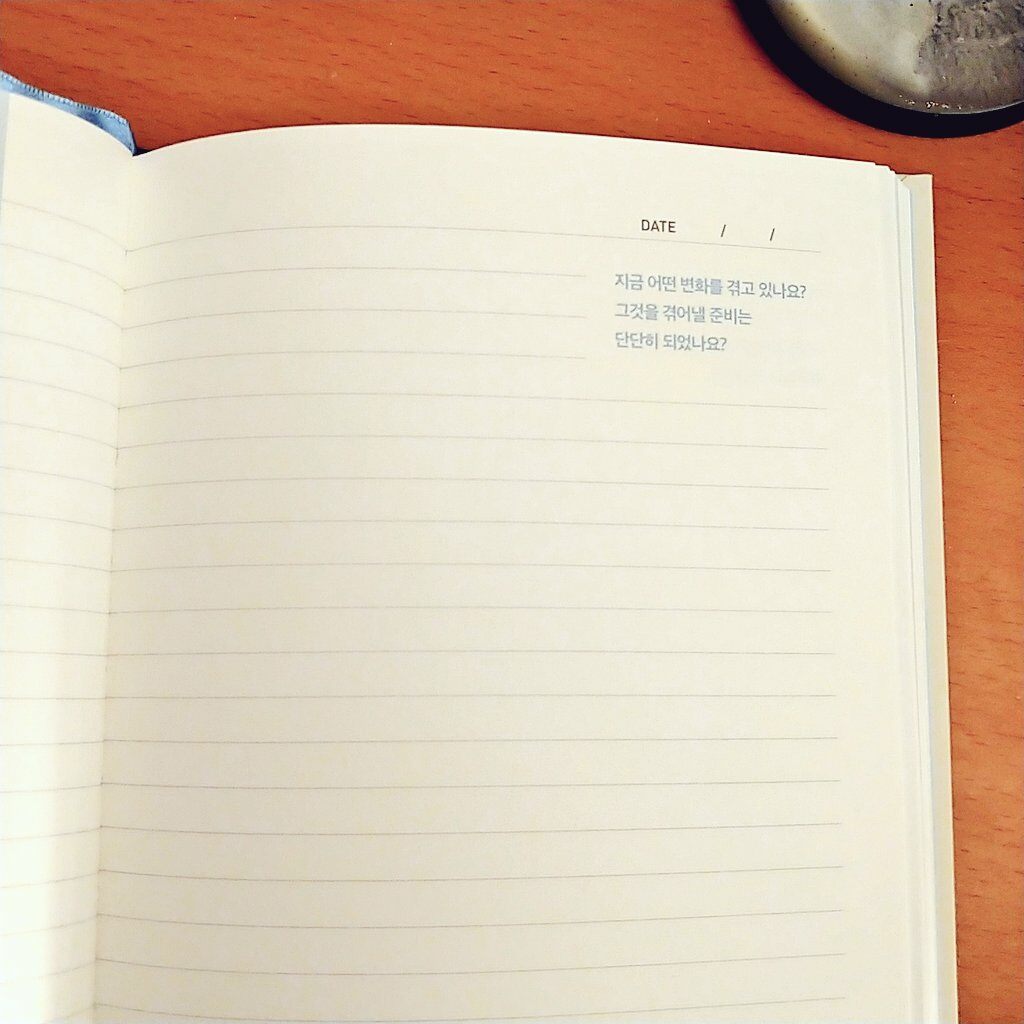 DATE / /
지금 어떤 변화를 겪고 있나요?
그것을 겪어낼 준비는
단단히 되었나요?